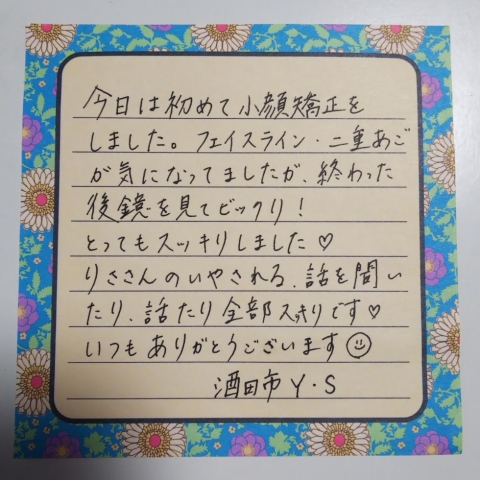 今日は初めて小顔矯正を
しました。フェイスライン・二重あご
が気になってましたが、終わった
後鏡を見てビックリ!
とってもスッキリしました♡
りささんのいやされる、話を聞い
たり、話たり全部スッキリです♡
いつもありがとうございます☺
酒田市 Y・S